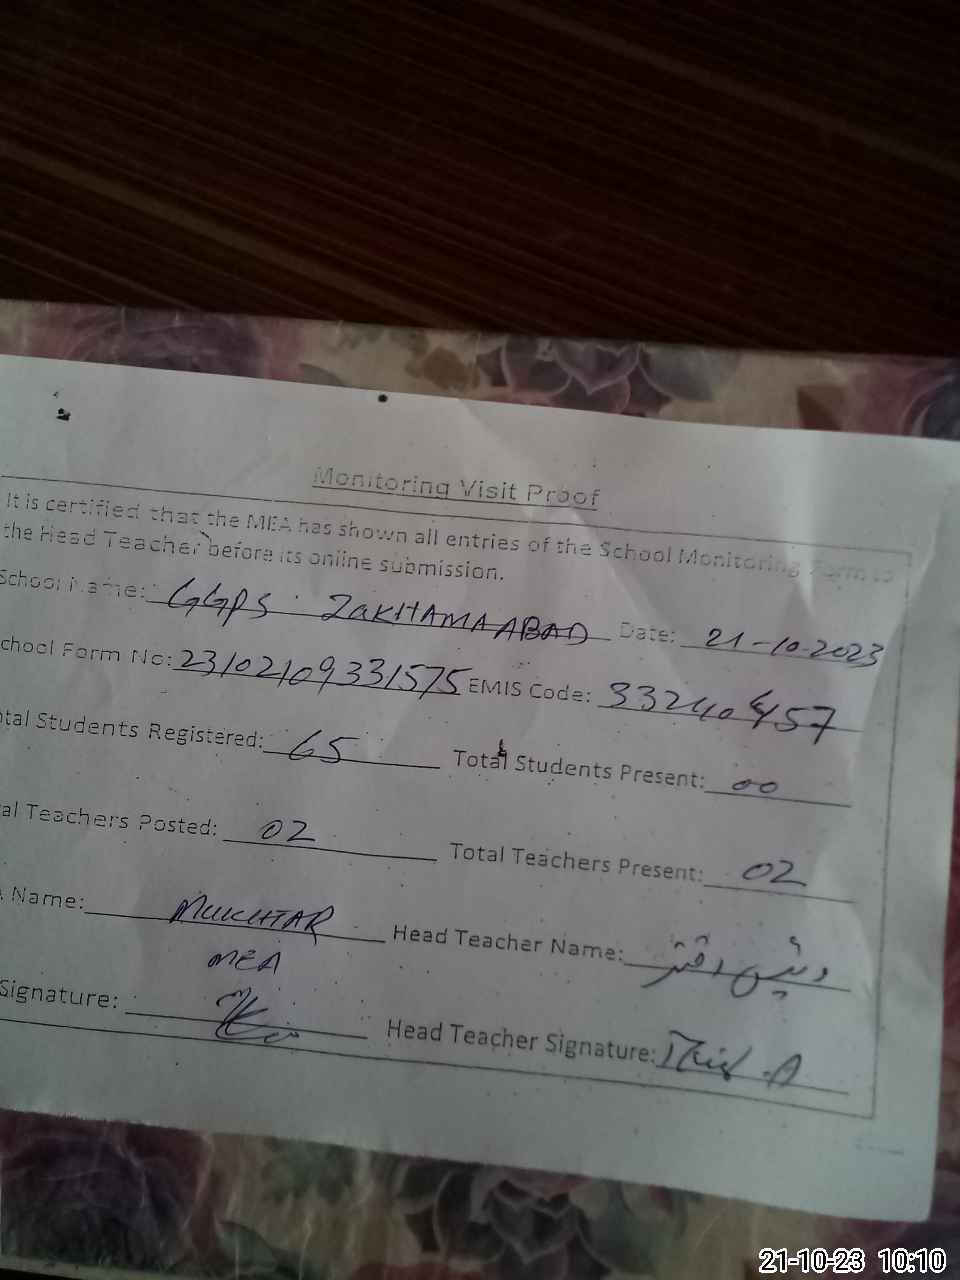 Monitoring Visit Proof
It is certified that the MEA has shown all entries of the School Monitoring Form to
the Head Teacher before its online submission.
School Name: GGPS ZAKHAMAABAD Date: 21-10-2023
chool Form No: 23102109331575 EMIS Code: 33240457
tal Students Registered: 65 Total Students Present: 00
al Teachers Posted: 02 Total Teachers Present: 02
Name: MUKHTAR Head Teacher Name:
MEA
Signature: Head Teacher Signature:
21-10-23 10:10